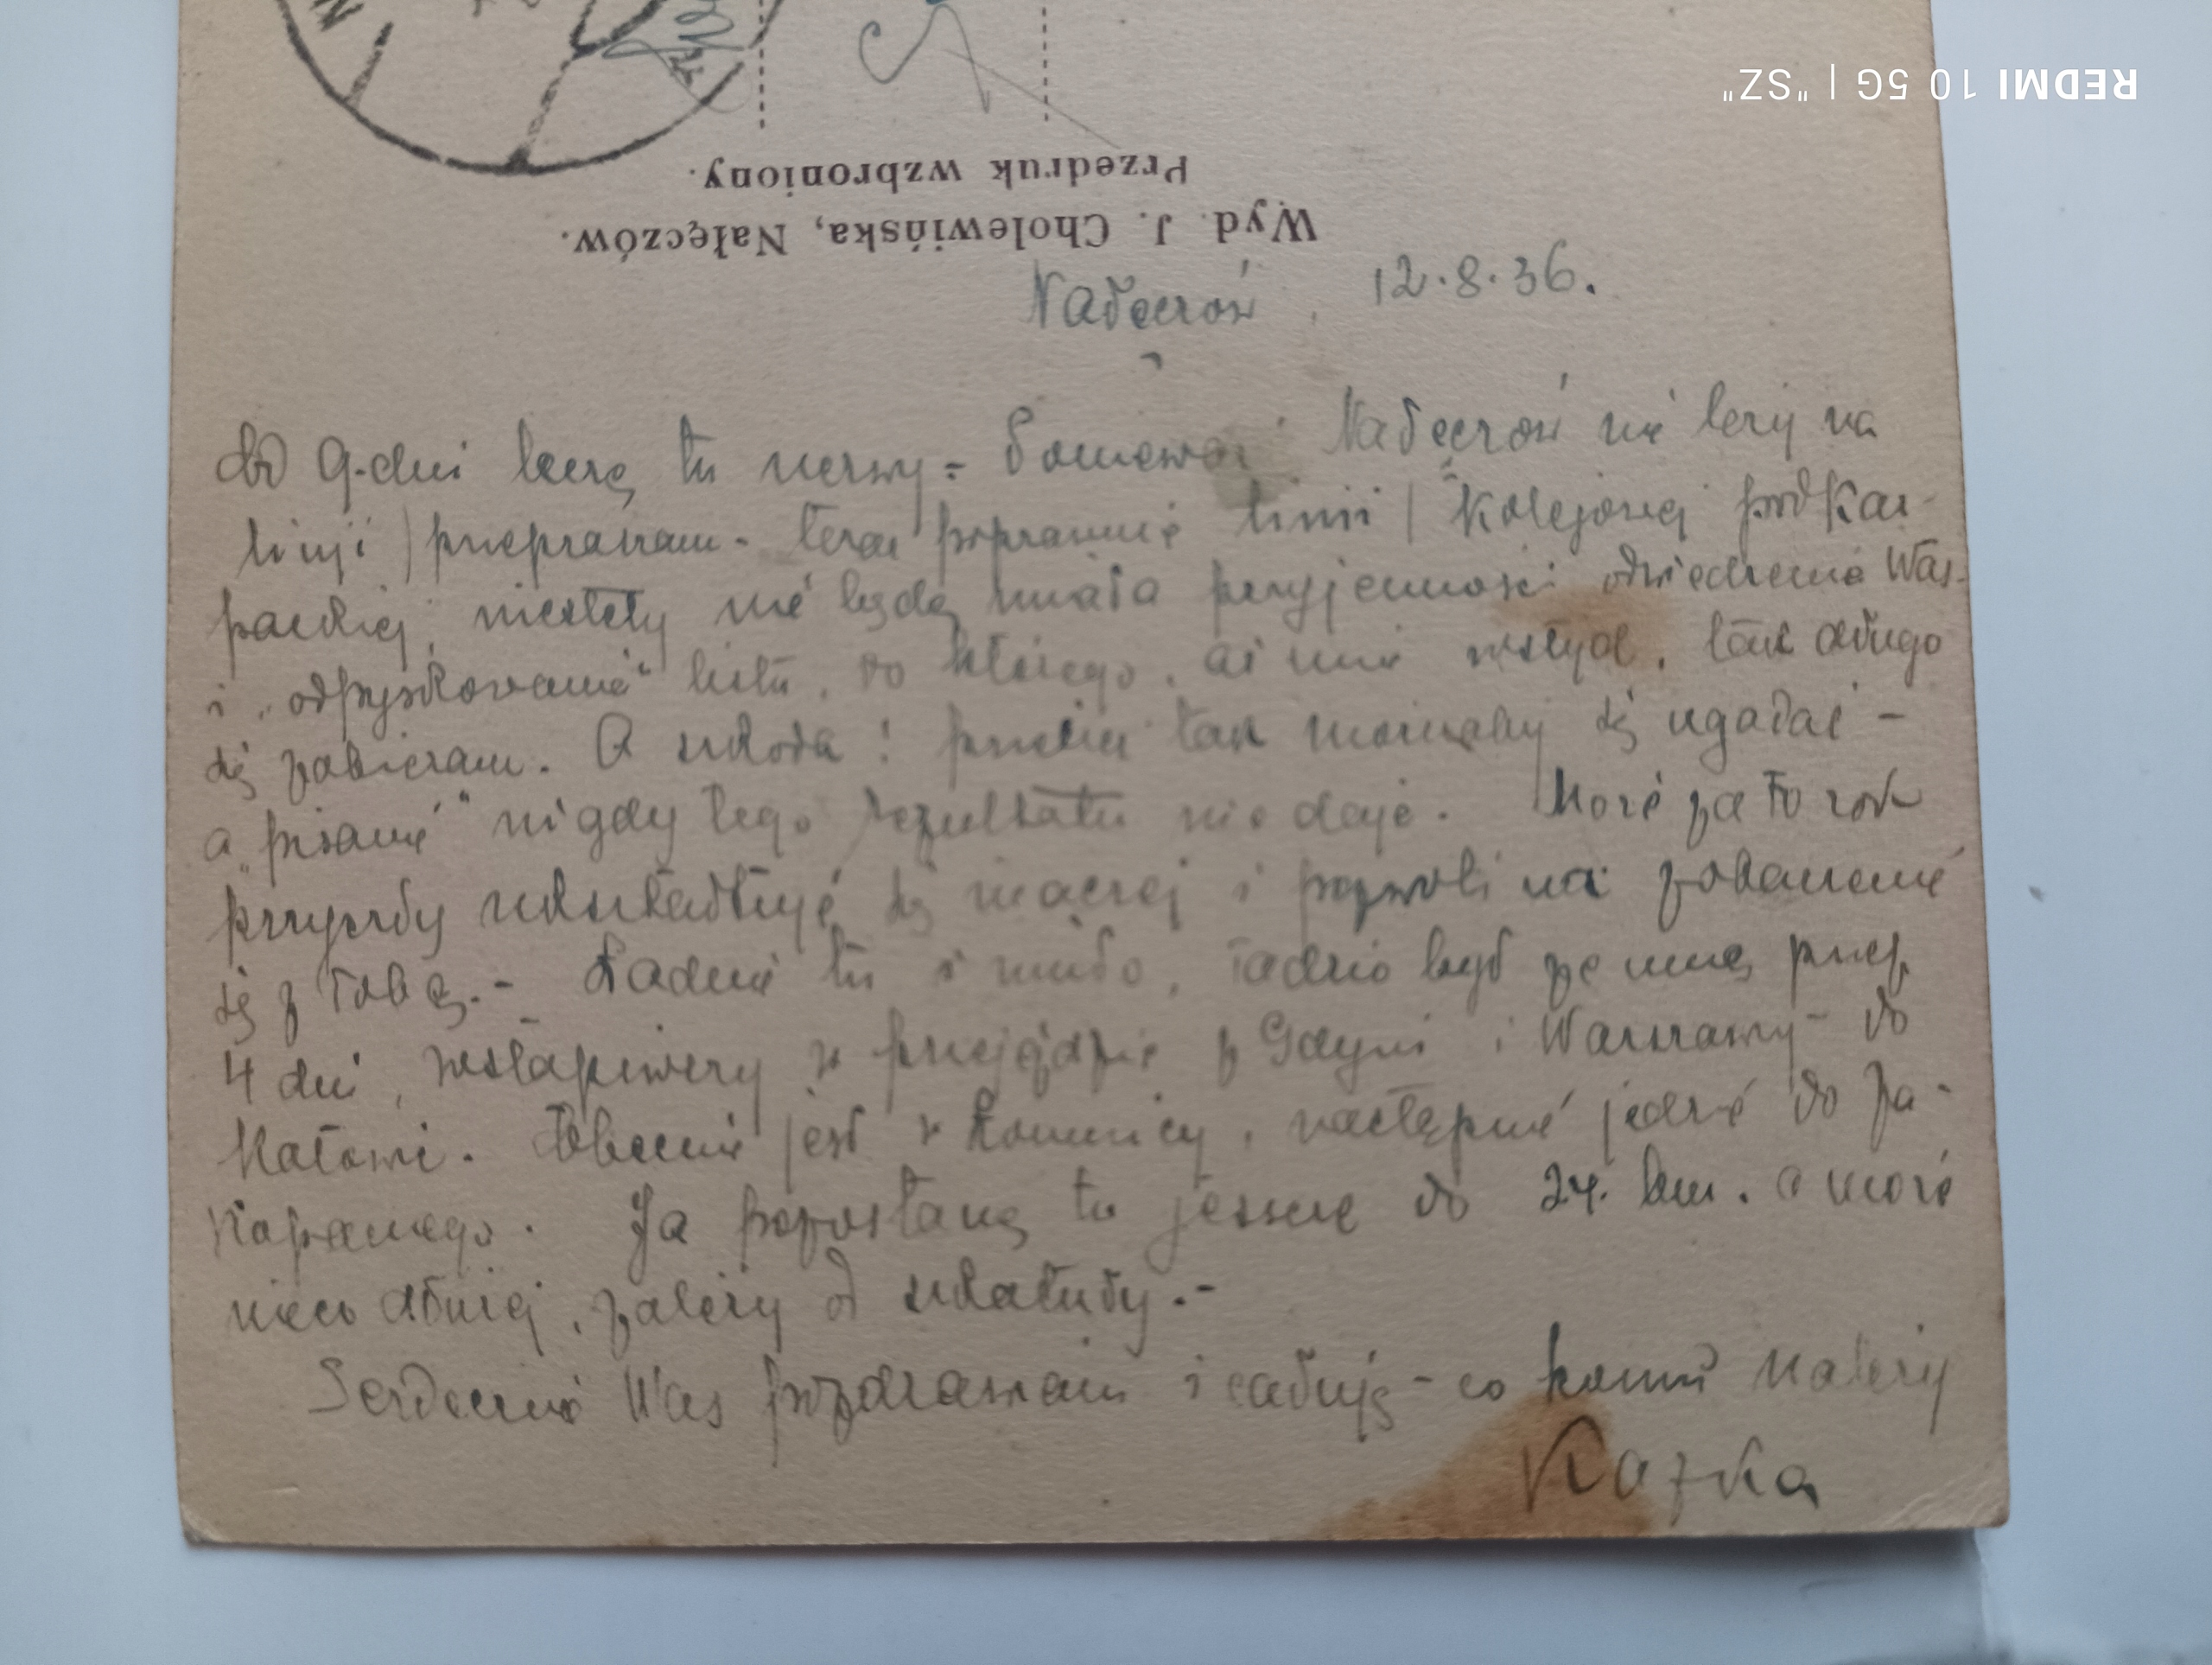 REDMI 10 5G | "SZ"
Przedruk wzbroniony.
Wyd. J. Cholewińska, Nałęczów.
Nałęczów, 12.8.36.
Od 9-dni leczę tu nerwy - Ponieważ Nałęczów nie leży na
linji) przepraszam - teraz poprawnie linii / kolejowej podkar-
packiej, niestety nie będę miała przyjemności odwiedzenia Was -
i "odpyskowania" listu, do którego, aż mnie wstyd, tak długo
się zabieram. A szkoda! przecież tak możnaby się ugadać -
a "pisanie" nigdy tego rezultatu nie daje. Może za to rok
przyszły ukształtuje się inaczej i pozwoli na zobaczenie
się z Tobą. - Ładnie tu i miło, Tadzio był ze mną przez
4 dni, wstąpiwszy w przejeździe z Gdyni i Warszawy - do
Katowic. Obecnie jest w Łomnicy, następnie jedzie do Za-
kopanego. Ja pozostanę tu jeszcze do 24. bm. a może
nieco dłużej, zależy od szkatuły. -
Serdecznie Was pozdrawiam i całuję - co komu należy
Kazka